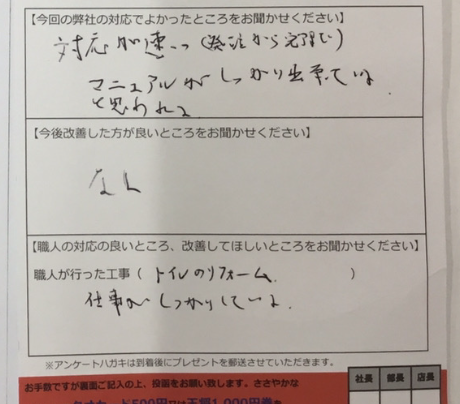 【今回の弊社の対応でよかったところをお聞かせください】
対応が速い (発注から完了まで)
マニュアルがしっかり出来ている
と思われる
【今後改善した方が良いところをお聞かせください】
なし
【職人の対応の良いところ、改善してほしいところをお聞かせください】
職人が行った工事 ( トイレのリフォーム )
仕事がしっかりしている。
※アンケートハガキは到着後にプレゼントを郵送させていただきます。
お手数ですが裏面ご記入の上、投函をお願い致します。ささやかな
社長 部長 店長